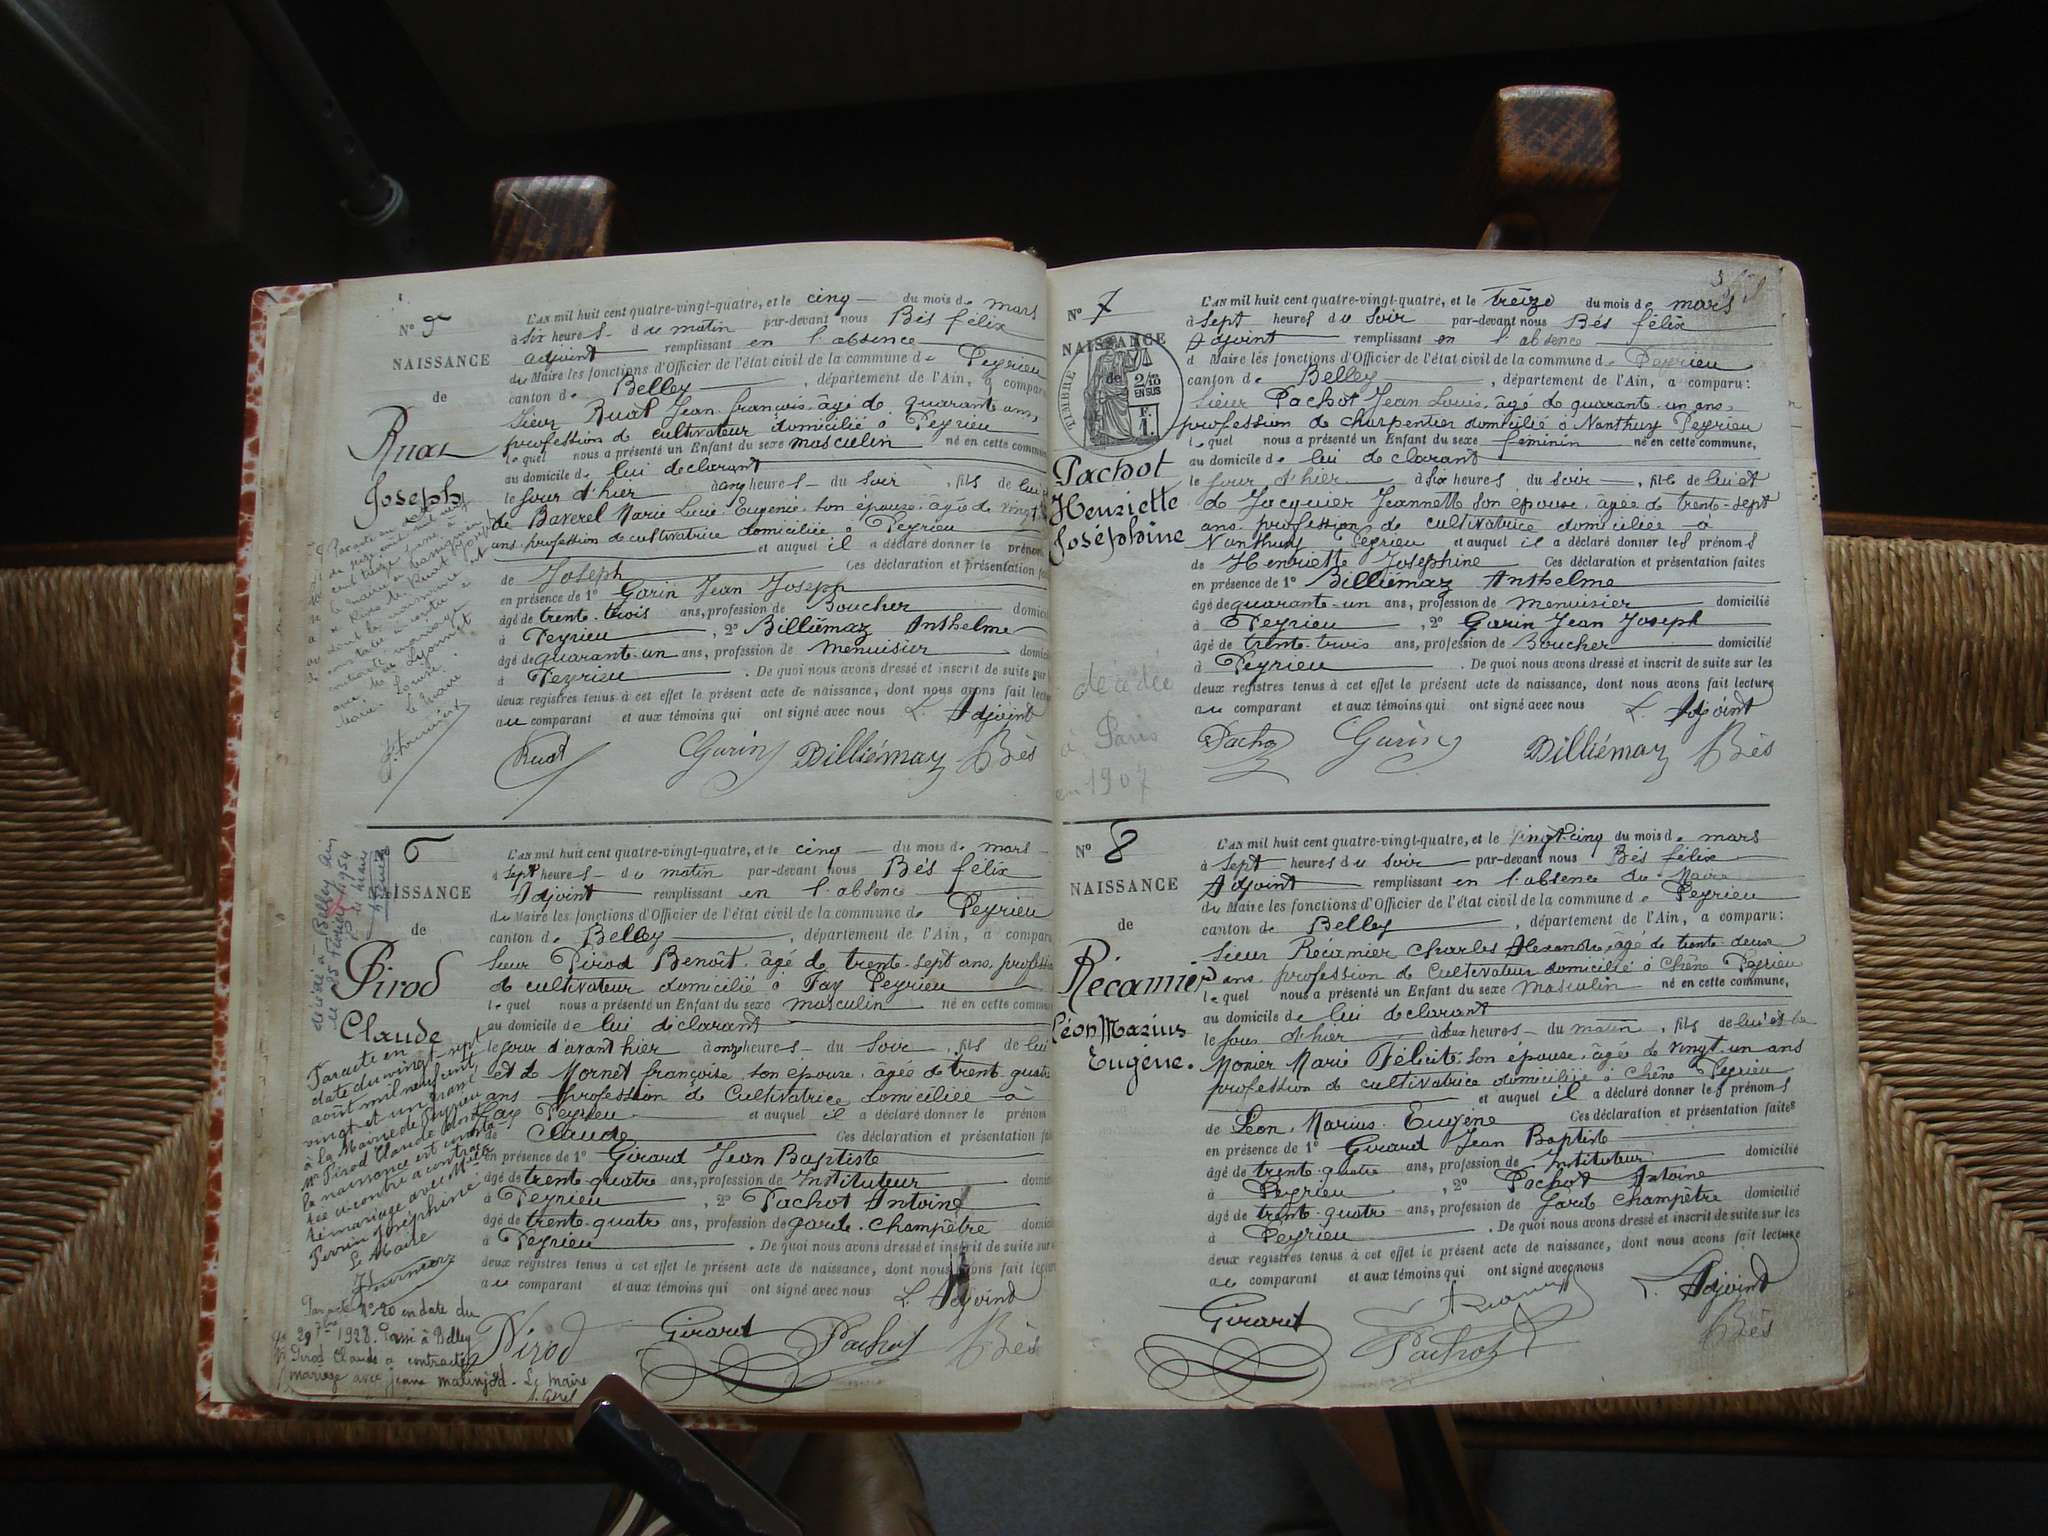 N° 5
NAISSANCE
de
Ruat
Joseph
L'AN mil huit cent quatre-vingt-quatre, et le cinq du mois de mars
à six heures du matin par-devant nous Bès félix
adjoint remplissant en l'absence
du Maire les fonctions d'Officier de l'état civil de la commune de Peyrieu
canton de Belley, département de l'Ain, a comparu
Sieur Ruat Jean françois, âgé de quarante ans,
profession de cultivateur domicilié à Peyrieu
lequel nous a présenté un Enfant du sexe masculin né en cette commune
au domicile de lui déclarant
le jour d'hier à onze heures du soir, fils de lui
de Baverel Marie Lucie Eugénie, son épouse, âgée de vingt
ans profession de cultivatrice domiciliée à Peyrieu
et auquel il a déclaré donner le prénom
de Joseph Ces déclaration et présentation
en présence de 1° Garin Jean Joseph
âgé de trente-trois ans, profession de Boucher
à Peyrieu, 2° Billiémaz Anthelme
âgé de quarant-un ans, profession de menuisier
à Peyrieu. De quoi nous avons dressé et inscrit de suite sur
deux registres tenus à cet effet le présent acte de naissance, dont nous avons fait lecture
au comparant et aux témoins qui ont signé avec nous L. Adjoint
Ruat Garin Billiémaz Bès
6
NAISSANCE
de
Pirod
Claude
décédé à Belley Ain
le 25 février 1954
le maire
Par acte en
date du vingt-sept
août mil neuf cent
vingt et un passé
à la Mairie de Peyrieu
Mr Pirod Claude dont
la naissance est consta-
tée ci-contre a contrac-
té mariage avec Melle
Perrin Joséphine
Le Maire
Par acte n° 20 en date du
29 1928. Passé à Belley
Pirod Claude a contracté
mariage avec Jeane malinjod. Le maire
L'AN mil huit cent quatre-vingt-quatre, et le cinq du mois de mars
à sept heures du matin par-devant nous Bès félix
Adjoint remplissant en l'absence
du Maire les fonctions d'Officier de l'état civil de la commune de Peyrieu
canton de Belley, département de l'Ain, a comparu
Sieur Pirod Benoît, âgé de trente-sept ans, profession
de cultivateur domicilié à Fay Peyrieu
lequel nous a présenté un Enfant du sexe masculin né en cette commune
au domicile de lui déclarant
le jour d'avant hier à onze heures du soir, fils de lui
et de Mornet françoise, son épouse, âgée de trente-quatre
ans profession de Cultivatrice domiciliée à
Fay Peyrieu et auquel il a déclaré donner le prénom
de Claude Ces déclaration et présentation
en présence de 1° Girard Jean Baptiste
âgé de trente-quatre ans, profession de Instituteur
à Peyrieu, 2° Pachot Antoine
âgé de trente-quatre ans, profession de garde-champêtre
à Peyrieu. De quoi nous avons dressé et inscrit de suite sur
deux registres tenus à cet effet le présent acte de naissance, dont nous avons fait
au comparant et aux témoins qui ont signé avec nous L. Adjoint
Pirod Girard Pachot Bès
N° 7
NAISSANCE
de
TIMBRE
2/10
EN SUS
F.
1.
Pachot
Henriette
Joséphine
décédée
à Paris
en 1907
L'AN mil huit cent quatre-vingt-quatre, et le treize du mois de mars
à sept heures du soir par-devant nous Bès félix
Adjoint remplissant en l'absence
d Maire les fonctions d'Officier de l'état civil de la commune de Peyrieu
canton de Belley, département de l'Ain, a comparu:
Sieur Pachot Jean Louis, âgé de quarante-un ans,
profession de charpentier domicilié à Nanthuy Peyrieu
lequel nous a présenté un Enfant du sexe féminin né en cette commune,
au domicile de lui déclarant
le jour d'hier à six heures du soir, fille de lui et
de Jacquier Jeannette son épouse, âgée de trente-sept
ans profession de cultivatrice domiciliée à
Nanthuy Peyrieu et auquel il a déclaré donner les prénoms
de Henriette Joséphine Ces déclaration et présentation faites
en présence de 1° Billiémaz Anthelme
âgé de quarante-un ans, profession de menuisier domicilié
à Peyrieu, 2° Garin Jean Joseph
âgé de trente-trois ans, profession de Boucher domicilié
à Peyrieu. De quoi nous avons dressé et inscrit de suite sur les
deux registres tenus à cet effet le présent acte de naissance, dont nous avons fait lecture
au comparant et aux témoins qui ont signé avec nous L. Adjoint
Pachot Garin Billiémaz Bès
N° 8
NAISSANCE
de
Récamier
Léon Marius
Eugène.
L'AN mil huit cent quatre-vingt-quatre, et le vingt-cinq du mois de mars
à sept heures du soir par-devant nous Bès félix
Adjoint remplissant en l'absence du Maire
du Maire les fonctions d'Officier de l'état civil de la commune de Peyrieu
canton de Belley, département de l'Ain, a comparu:
Sieur Récamier Charles Alexandre, âgé de trente-deux
ans, profession de Cultivateur domicilié à Chêne Peyrieu
lequel nous a présenté un Enfant du sexe Masculin né en cette commune,
au domicile de lui déclarant
le jour d'hier à deux heures du matin, fils de lui et de
Monier Marie Félicité, son épouse, âgée de vingt-un ans
profession de cultivatrice domiciliée à Chêne Peyrieu
et auquel il a déclaré donner les prénoms
de Léon, Marius, Eugène Ces déclaration et présentation faites
en présence de 1° Girard Jean Baptiste
âgé de trente-quatre ans, profession de Instituteur domicilié
à Peyrieu, 2° Pachot Antoine
âgé de trente-quatre ans, profession de Garde Champêtre domicilié
à Peyrieu. De quoi nous avons dressé et inscrit de suite sur les
deux registres tenus à cet effet le présent acte de naissance, dont nous avons fait lecture
au comparant et aux témoins qui ont signé avec nous
L. Adjoint
Girard Pachot Bès